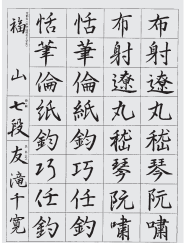 布射遼丸嵇琴阮嘯
布射遼丸嵇琴阮嘯
恬筆倫紙鈞巧任釣
恬筆倫紙鈞巧任釣
福山 七段 友滝千寛